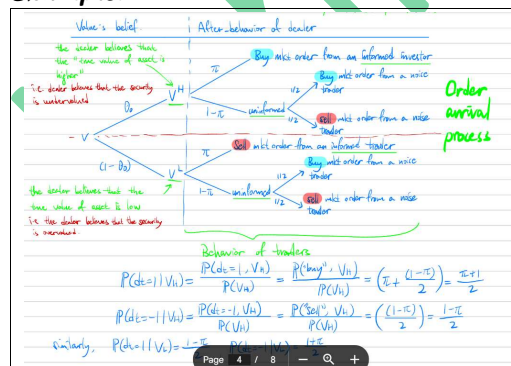 Value's belief After-behavior of dealer
the dealer believes that
the "true value of asset is
higher"
i.e. dealer believes that the security
is undervalued
Buy mkt order from an informed investor
π
V^H
θ₀
1-π uninformed
1/2 Buy mkt order from a noise
trader
1/2 Sell mkt order from a noise
trader
Order
arrival
process
V
(1-θ₀)
π
Sell mkt order from an informed trader
V^L
1-π uninformed
1/2 Buy mkt order from a noise
trader
1/2 Sell mkt order from a noise
trader
the dealer believes that the
true value of asset is low
i.e. the dealer believes that the security
is overvalued.
Behavior of traders
P(dt=1|V_H) = P(dt=1, V_H)/P(V_H) = P("buy", V_H)/P(V_H) = (π + (1-π)/2) = (π+1)/2
P(dt=-1|V_H) = P(dt=-1, V_H)/P(V_H) = P("Sell", V_H)/P(V_H) = ((1-π)/2) = (1-π)/2
similarly, P(dt=1|V_L) = (1-π)/2
Page 4 / 8 − +